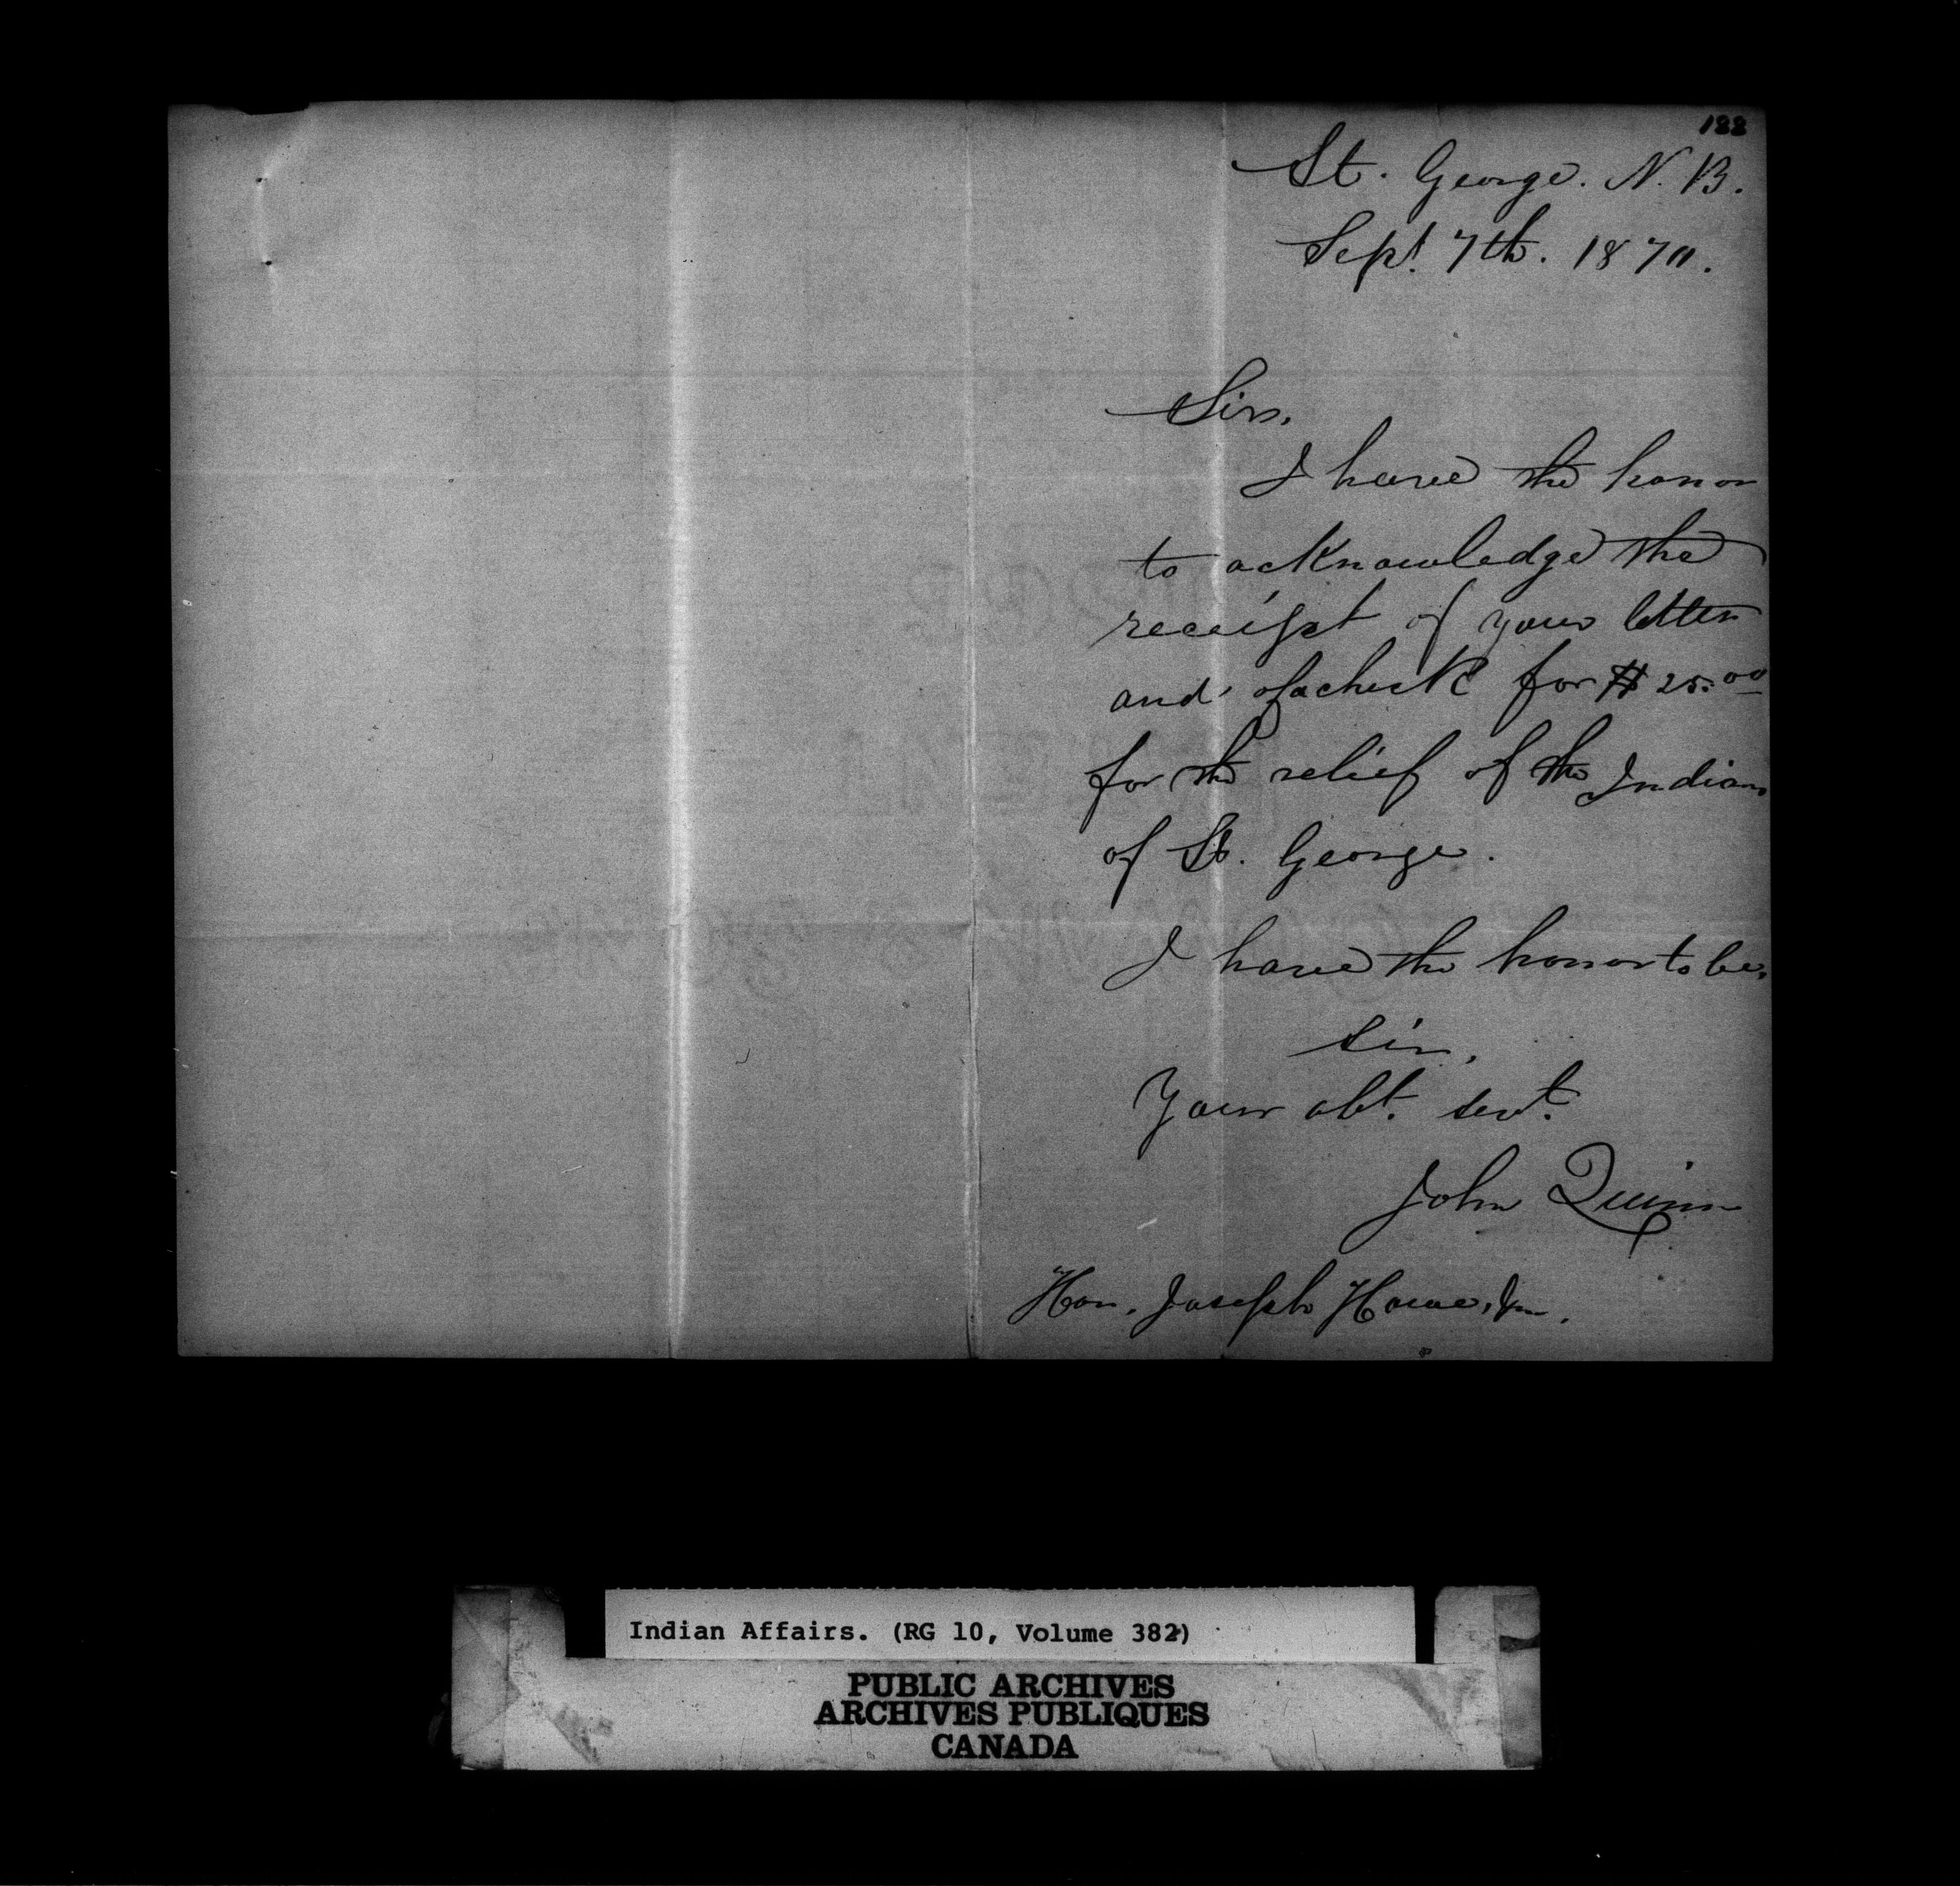 188
St. George. N. B.
Sept. 7th. 1870.
Sir,
I have the honor
to acknowledge the
receipt of your letter
and of a check for $25.00
for the relief of the Indians
of St. George.
I have the honor to be,
Sir,
Your obt. servt.
John Quinn
Hon. Joseph Howe,
Indian Affairs. (RG 10, Volume 382)
PUBLIC ARCHIVES
ARCHIVES PUBLIQUES
CANADA